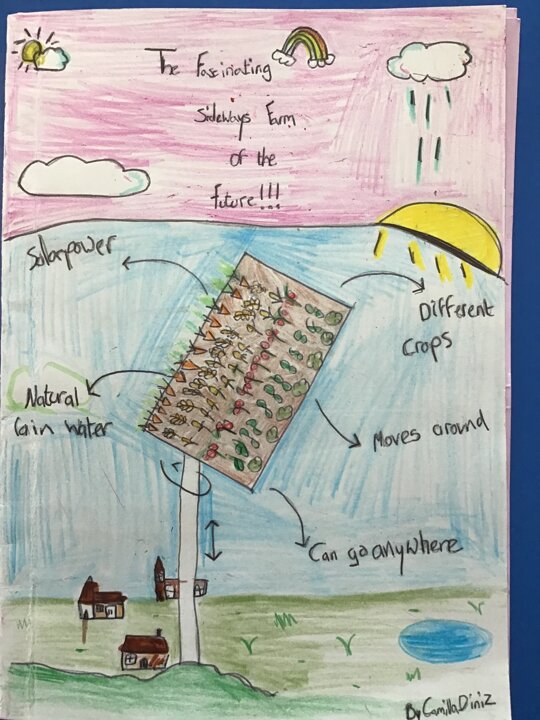 The Fascinating
Sideways Farm
of the
Future!!!
Solarpower
Different
Crops
Natural
Rain Water
Moves around
Can go anywhere
By Camilla Diniz